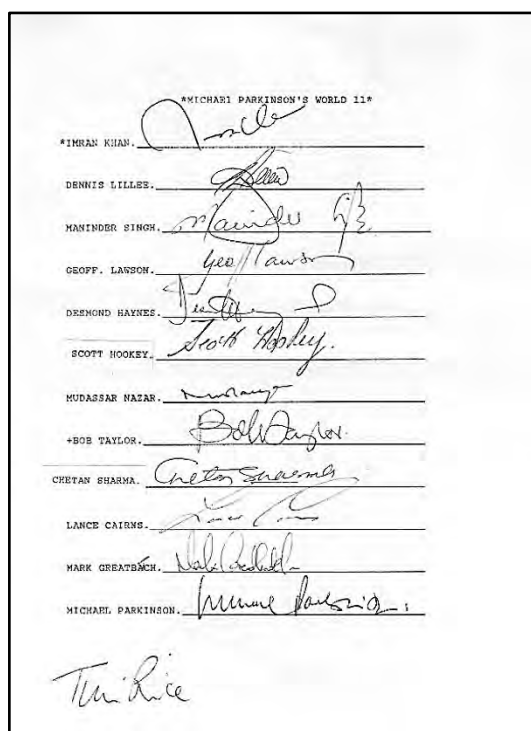 *MICHAEl PARKINSON'S WORLD 11*
*IMRAN KHAN.
DENNIS LILLEE.
MANINDER SINGH. Maninder
GEOFF. LAWSON. Geoff Lawson
DESMOND HAYNES.
SCOTT HOOKEY. Scott Hookey.
MUDASSAR NAZAR.
+BOB TAYLOR. Bob Taylor.
CHETAN SHARMA. Chetan Sharma
LANCE CAIRNS.
MARK GREATBACH.
MICHAEL PARKINSON.
Tim Rice